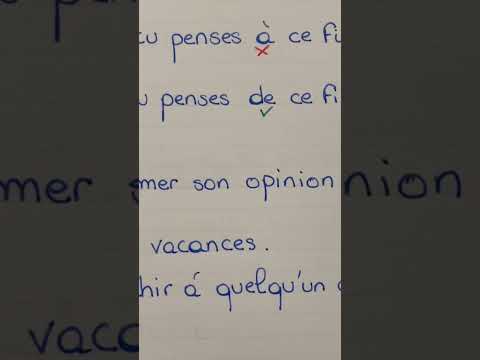 tu penses à ce fi
u penses de ce fi
mer mer son opinion nion
vacances.
hir à quelqu'un
vaca